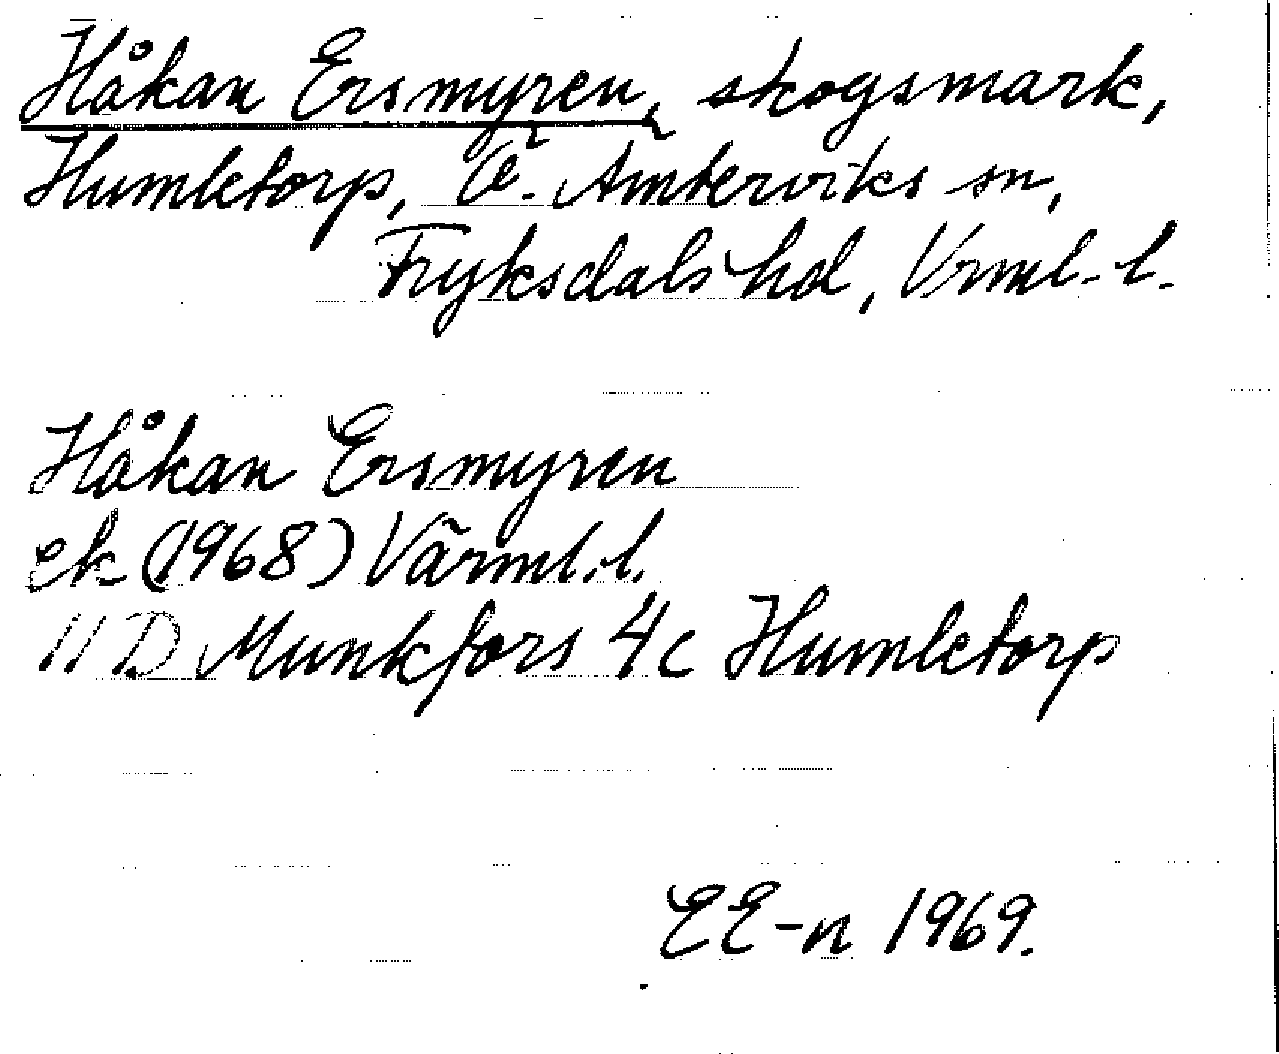 Håkan Ersmyren, skogsmark,
Humletorp, Ö. Ämterviks sn,
Fryksdals hd, Vrml. l.
Håkan Ersmyren
ek (1968) Värml. l.
11 D Munkfors 4c Humletorp
EE-n 1969.